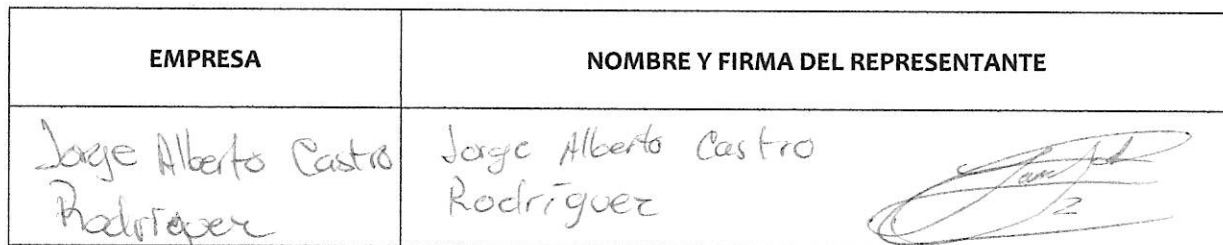 EMPRESA
NOMBRE Y FIRMA DEL REPRESENTANTE
Jorge Alberto Castro
Rodríguez
Jorge Alberto Castro
Rodríguez